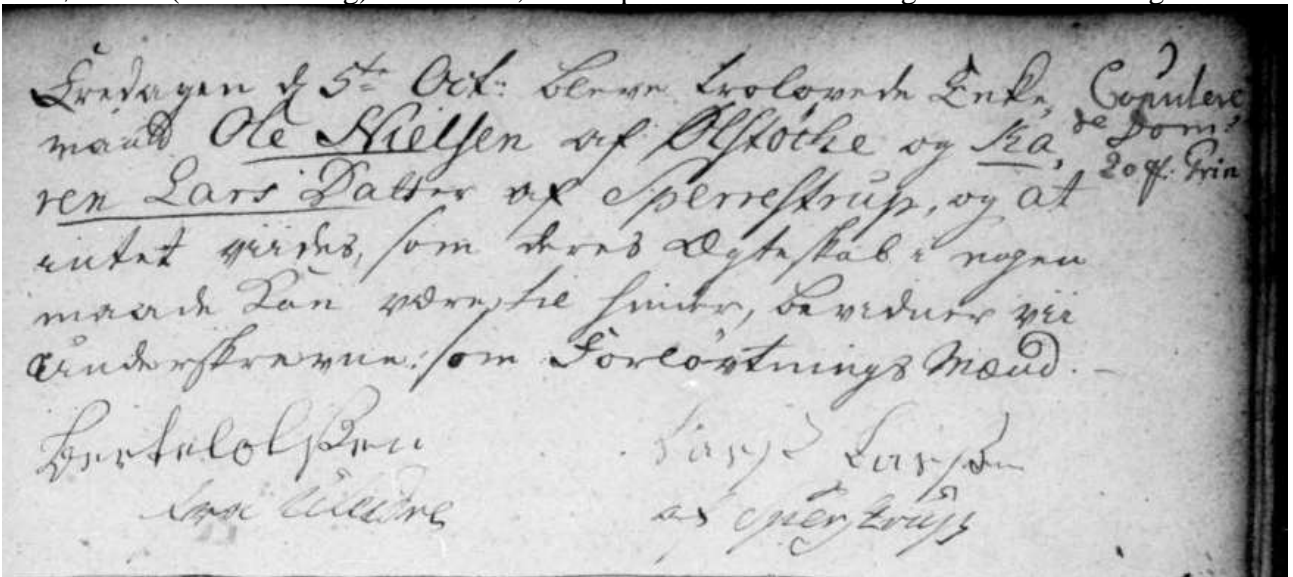 Fredagen d 5te Oct: bleve trolovede Enke,
mand Ole Nielsen af Ølstøcke og Ka,
ren Lars Datter af Sperrestrup, og at
intet viides, som deres Ægteskab i nogen
maade kan være til hinder, bevidner vii
Underskrevne som Forløvtnings Mænd.
Copulere
de Dom:
20 p. Trin
Bertelolssen
fra
Lars Larssen
af Sperstrup